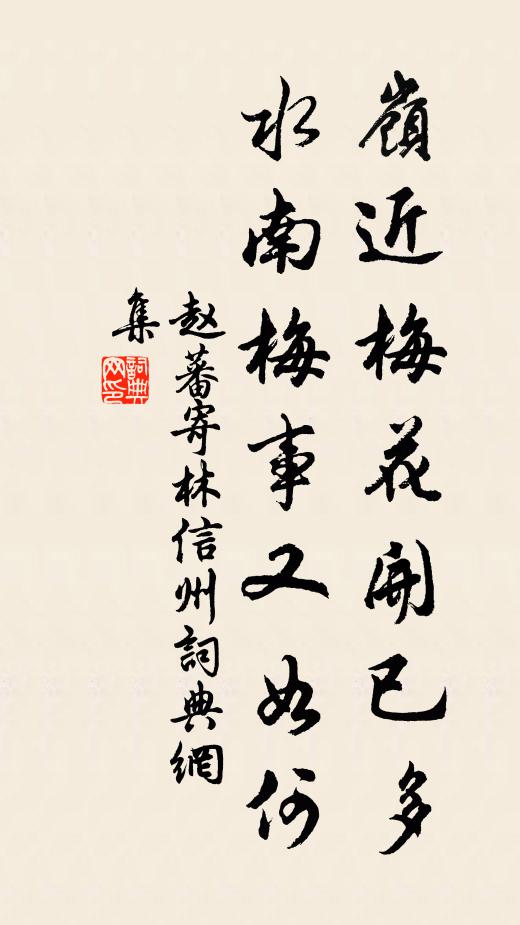 嶺近梅花開已多
水南梅事又如何
赵蕃寄林信州詞典網
集
詞典
网印